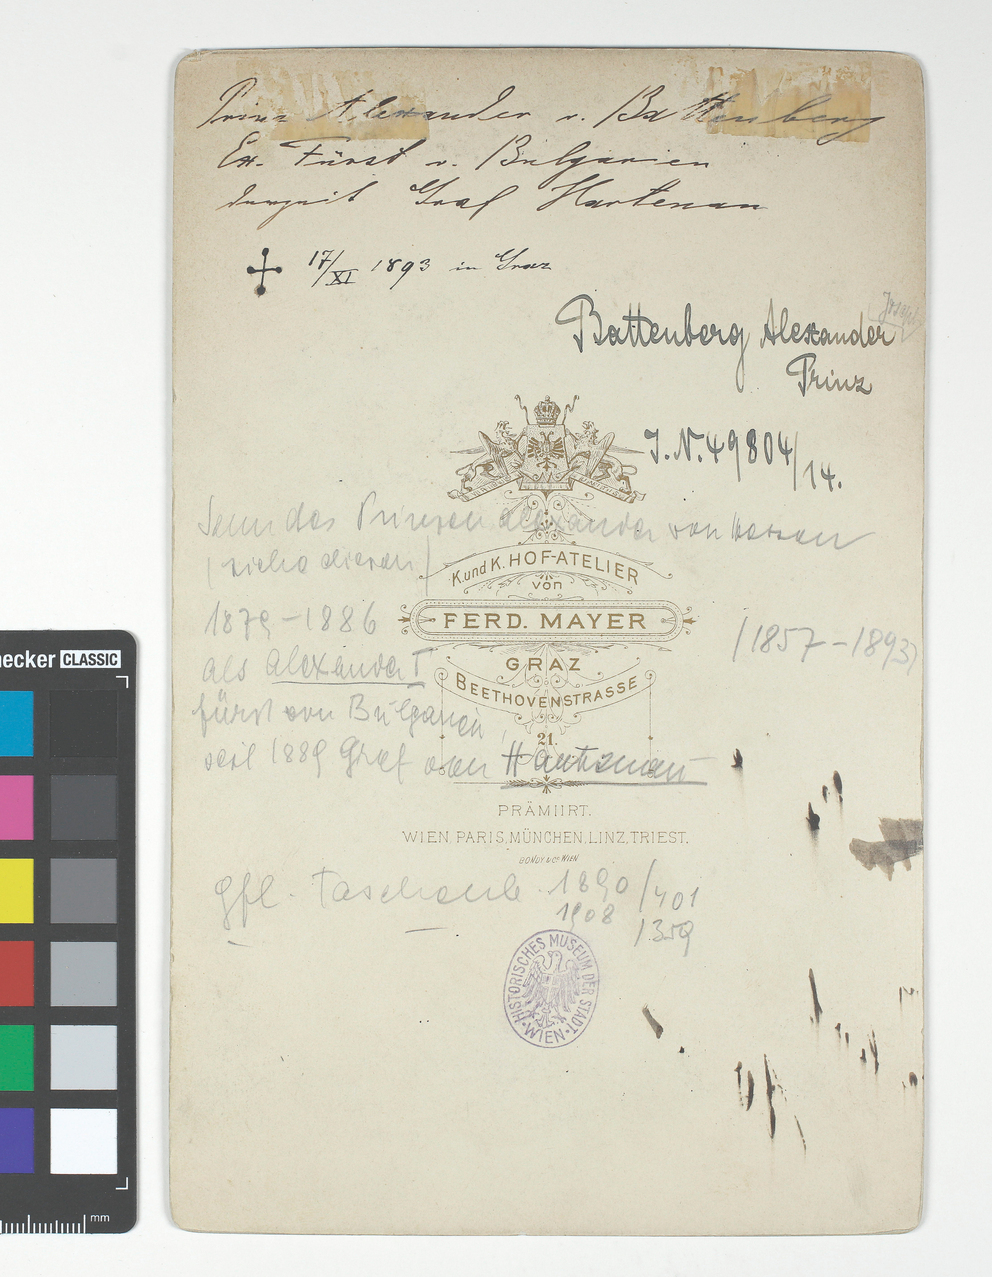 Prinz Alexander v. Battenberg
Ex-Fürst v. Bulgarien
derzeit Graf Hartenau
17/XI 1893 in Graz
Joseph
Battenberg Alexander
Prinz
J.N. 49804/14.
Sohn des Prinzen Alexander von Hessen
(siehe diesen)
K. und K. HOF-ATELIER
von
1879-1886
FERD. MAYER
(1857-1893)
als Alexander I
GRAZ
BEETHOVENSTRASSE
Fürst von Bulgarien,
21.
seit 1889 Graf von Hartenau
PRÄMIIRT.
WIEN, PARIS, MÜNCHEN, LINZ, TRIEST.
gfl. Taschenb 1890/401
1908/359
HISTORISCHES MUSEUM DER STADT WIEN
checker CLASSIC
mm